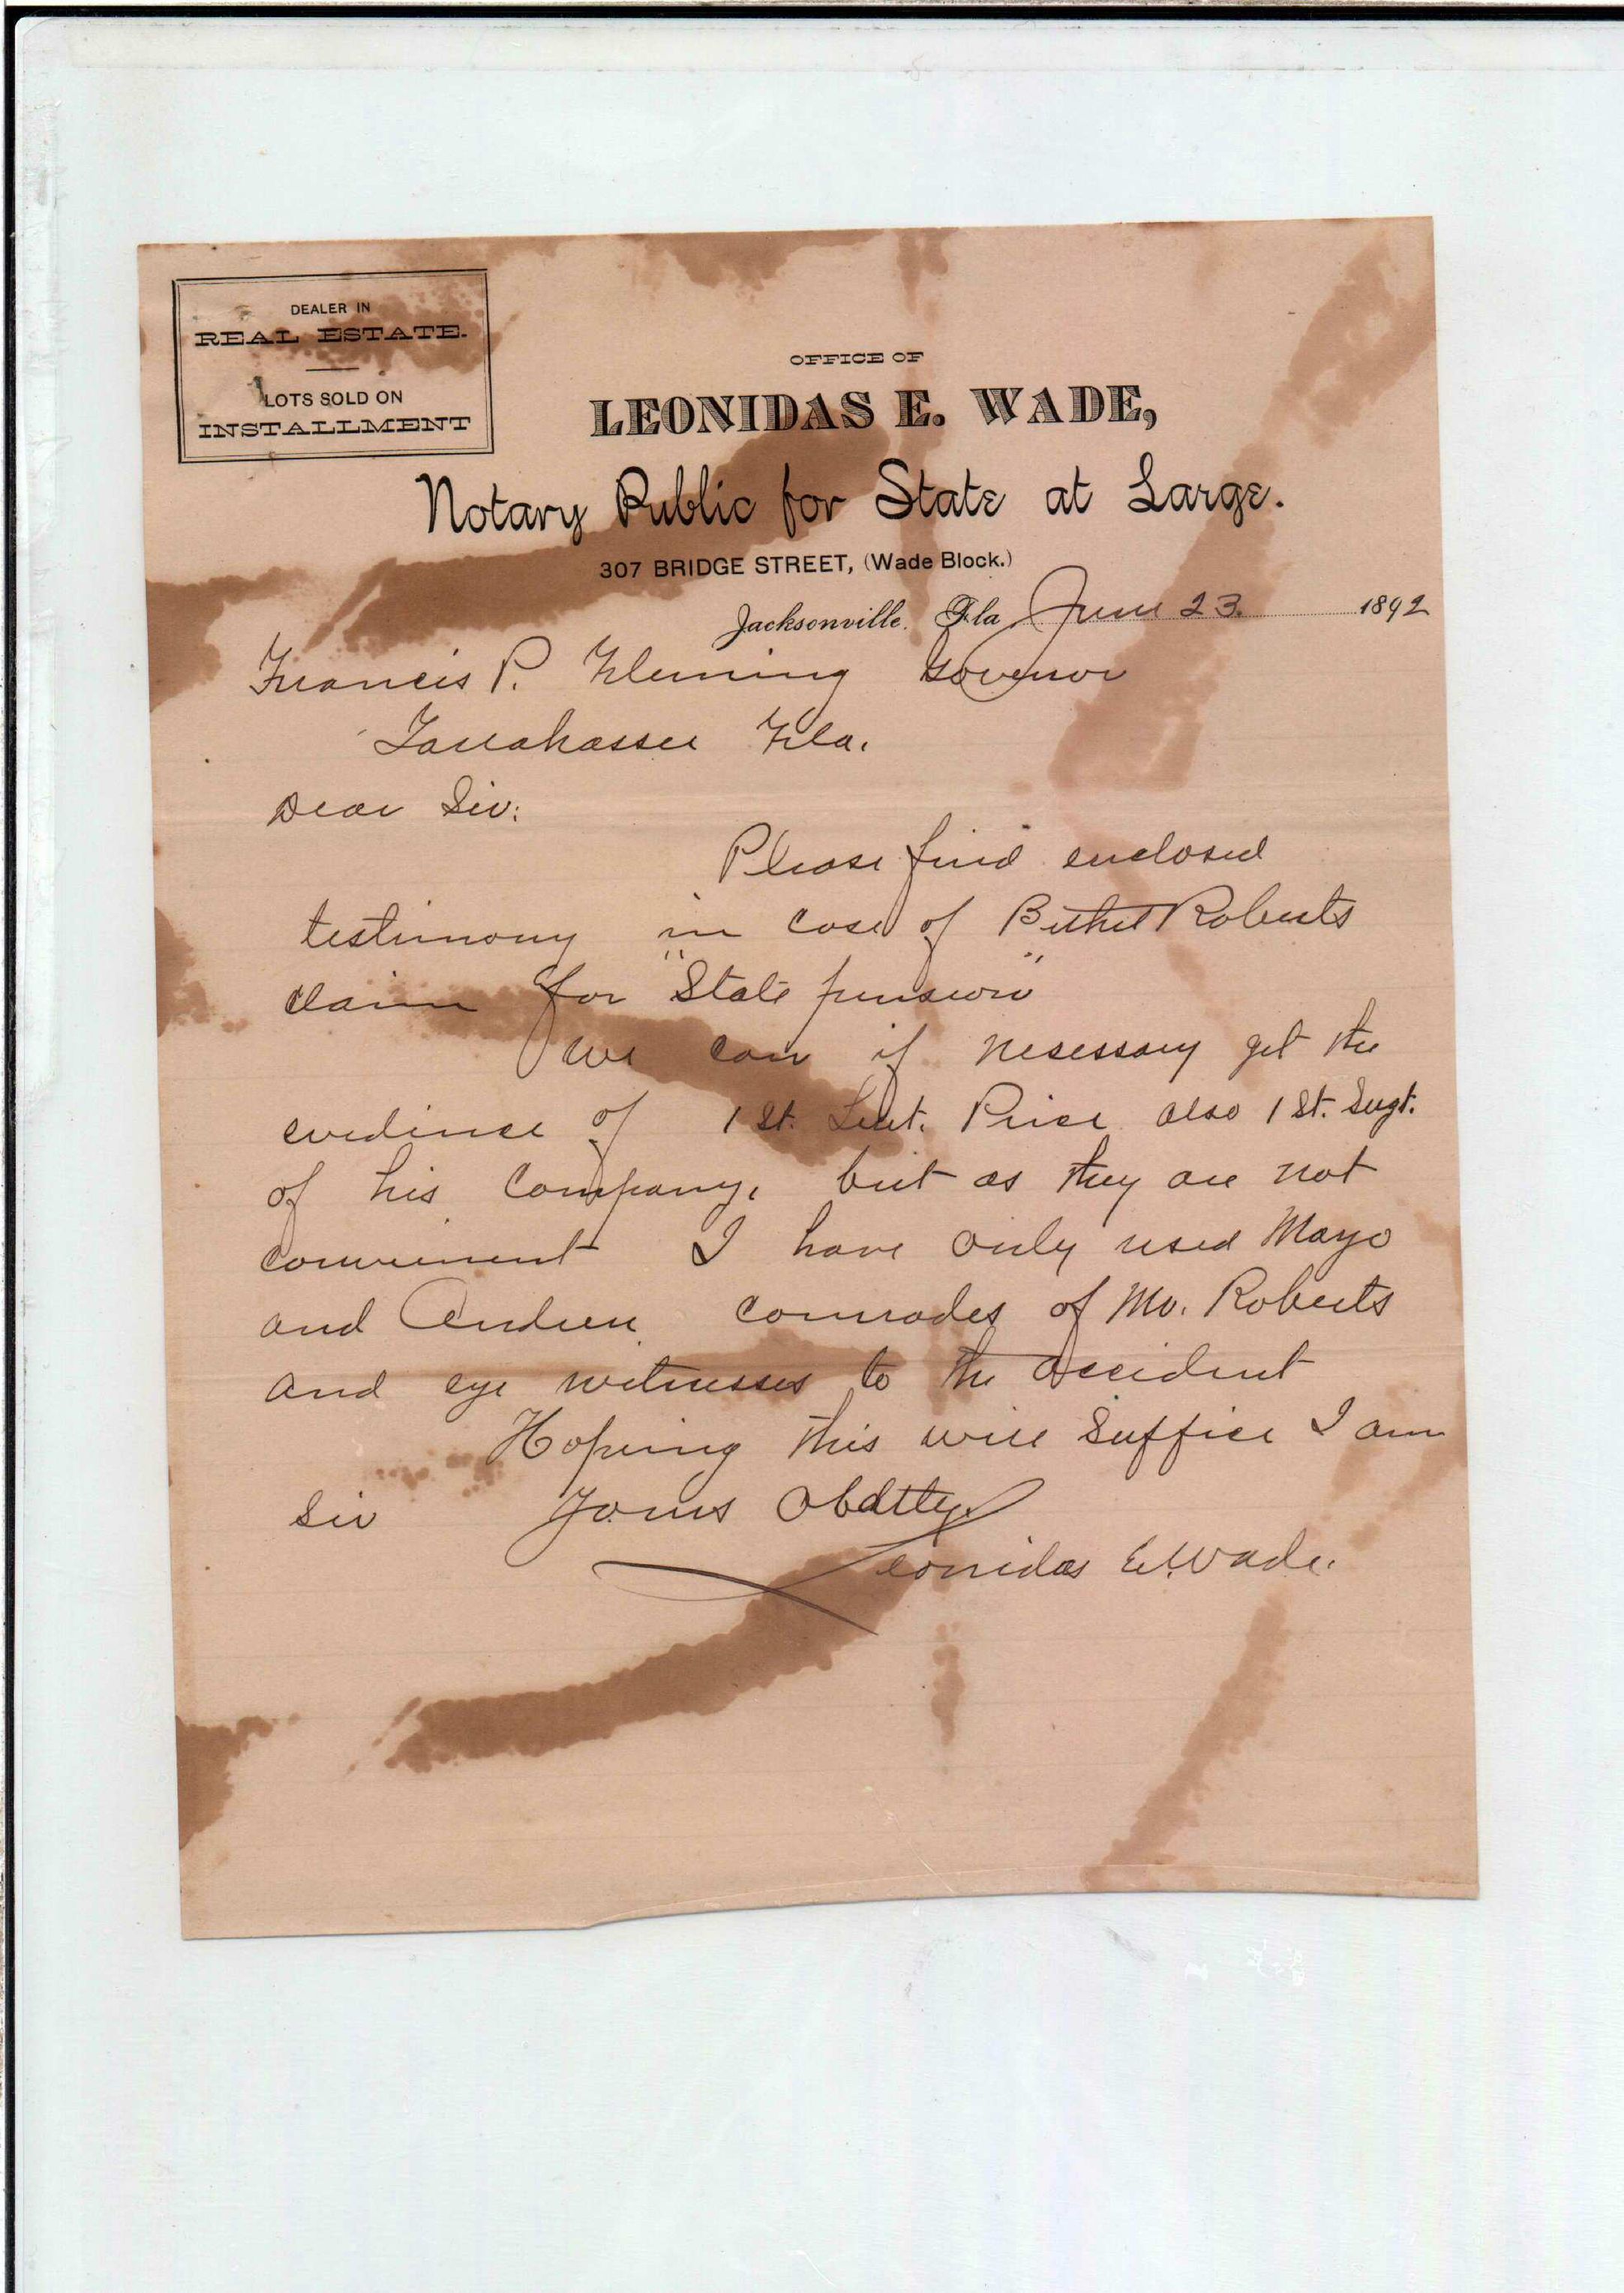 DEALER IN
REAL ESTATE.
LOTS SOLD ON
INSTALLMENT
OFFICE OF
LEONIDAS E. WADE,
Notary Public for State at Large.
307 BRIDGE STREET, (Wade Block.)
Jacksonville, Fla June 23. 1892
Francis P. Fleming Governor
Tallahassee Fla.
Dear Sir:
Please find enclosed
testimony in case of Bethel Roberts
claim for "State pension"
We can if nesessary get the
evidence of 1st. Leut. Price also 1st. Sergt.
of his Company, but as they are not
convenient I have only used Mayo
and Andreu comrades of Mr. Roberts
and eye witnesses to the accident
Hoping this will suffice I am
Sir Yours Obdtly.
Leonidas E. Wade.